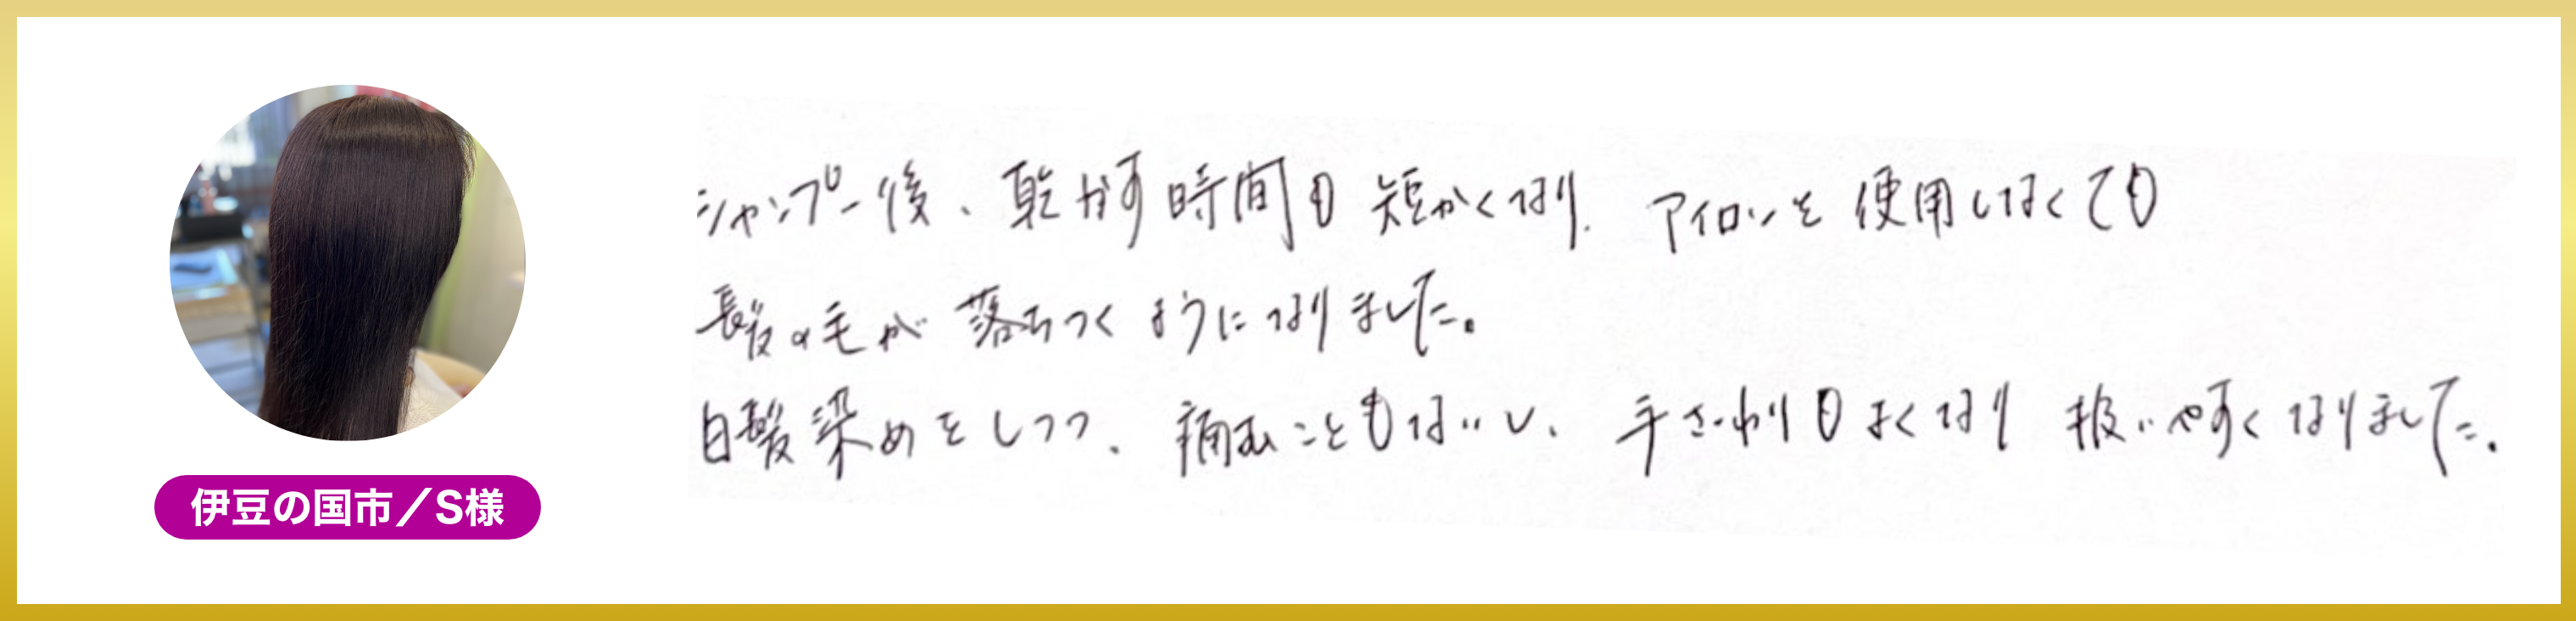 シャンプー後、乾かす時間も短かくなり、アイロンを使用しなくても
髪の毛が落ちつくようになりました。
白髪染めをしつつ、痛むこともないし、手ざわりもよくなり扱いやすくなりました。
伊豆の国市／S様